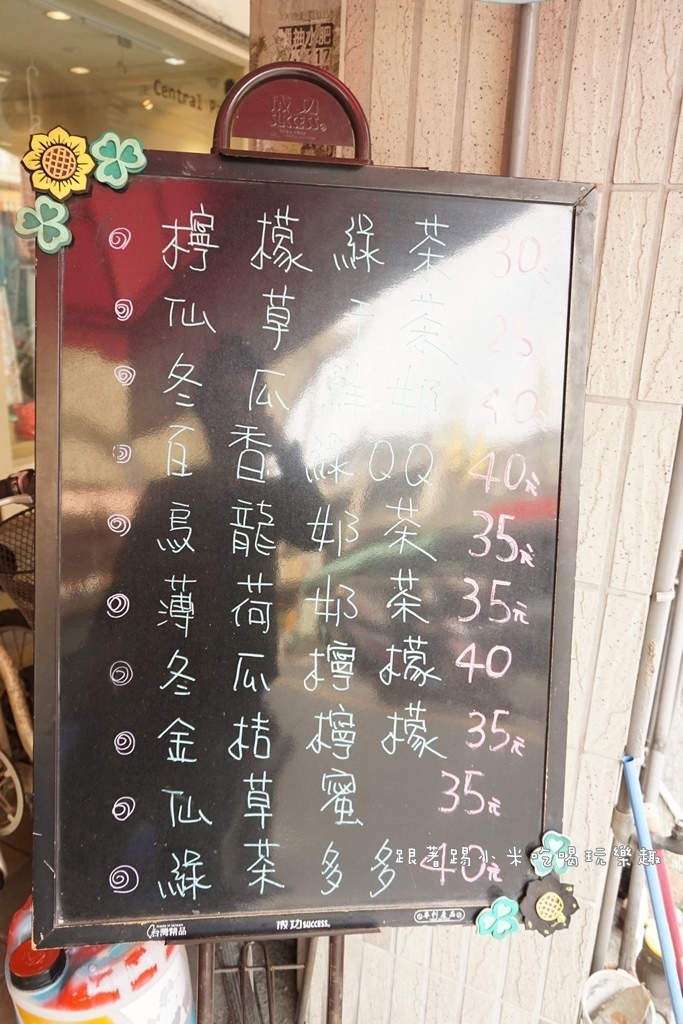 抽水肥
Central P
成功
SUCCESS®
檸檬綠茶 30元
仙草干茶 25
冬瓜鮮奶 40
百香綠QQ 40元
烏龍奶茶 35元
薄荷奶茶 35元
冬瓜檸檬 40
金桔檸檬 35元
仙草蜜 35元
綠茶多多 40元
跟著踢小米吃喝玩樂趣
台灣精品
成功 SUCCESS®
專利產品